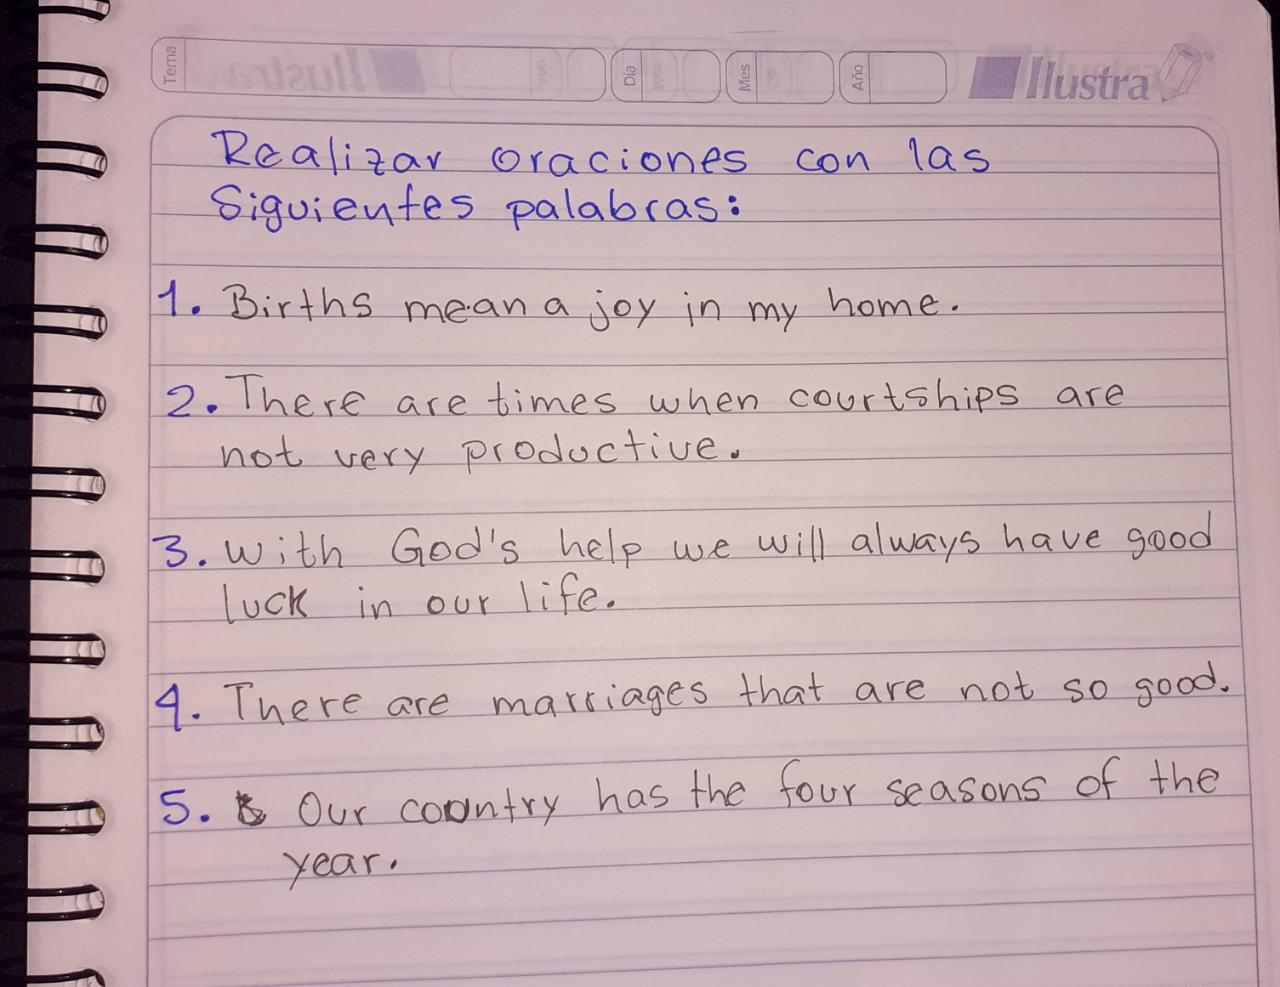 Tema Día Mes Año Ilustra
Realizar oraciones con las
Siguientes palabras:
1. Births mean a joy in my home.
2. There are times when courtships are
not very productive.
3. With God's help we will always have good
luck in our life.
4. There are marriages that are not so good.
5. Our country has the four seasons of the
year.